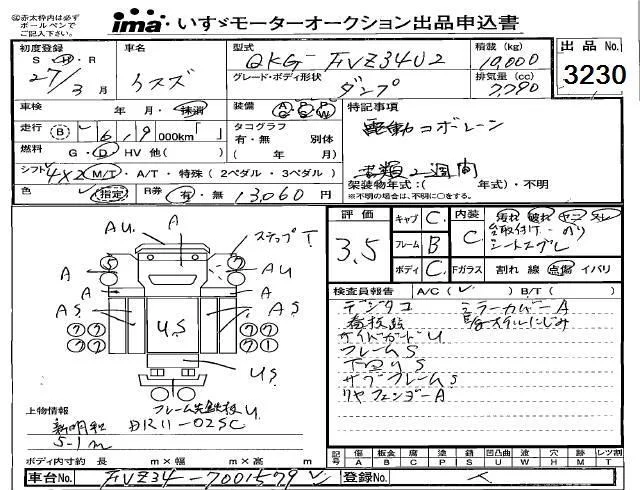 ㊟赤太枠内は必ず
ボールペンで
ご記入下さい。
ima いすゞモーターオークション出品申込書
初度登録 S H R 27/3月
車名 イスズ
型式 QKG-FVZ34U2
積載 (kg) 10,000
出品No. 3230
グレード・ボディ形状 ダンプ
排気量 (cc) 7,790
車検 年・月・抹消
装備
特記事項
電動コボレーン
走行 B 619 000km「 」
タコグラフ 有・無 別体
( 年 月)
書類2週間
燃料 G・D HV 他( )
シフト 4×2 M/T・A/T・特殊(2ペダル・3ペダル)
架装物年式:( 年式)・不明
※不明の場合は、不明に○をする。
色 指定 R券 有・無 13,060円
評価 3.5
キャブ C
フレーム B
ボディ C
内装 C
汚れ 破れ ヤニ スレ
Fガラス 割れ 線 点傷 イバリ
検査員報告 A/C( ) B/T( )
デジタコ ミラーカバーA
サイドガードU
フレームS
下回りS
サブフレームS
リヤフェンダーA
AU A ステップT
A A AU
A A
AS AS
U.S
US
フレーム先鉄板U
上物情報
新明和 DR11-02SC
5-1m
ボディ内寸約 長 m×幅 m×高 m
記号 傷A 板金B 腐C 塗P 錆S 凹U 凸凹曲W 波H 穴H 跡M レツ割T
車台No. FVZ34-7001579
登録No.